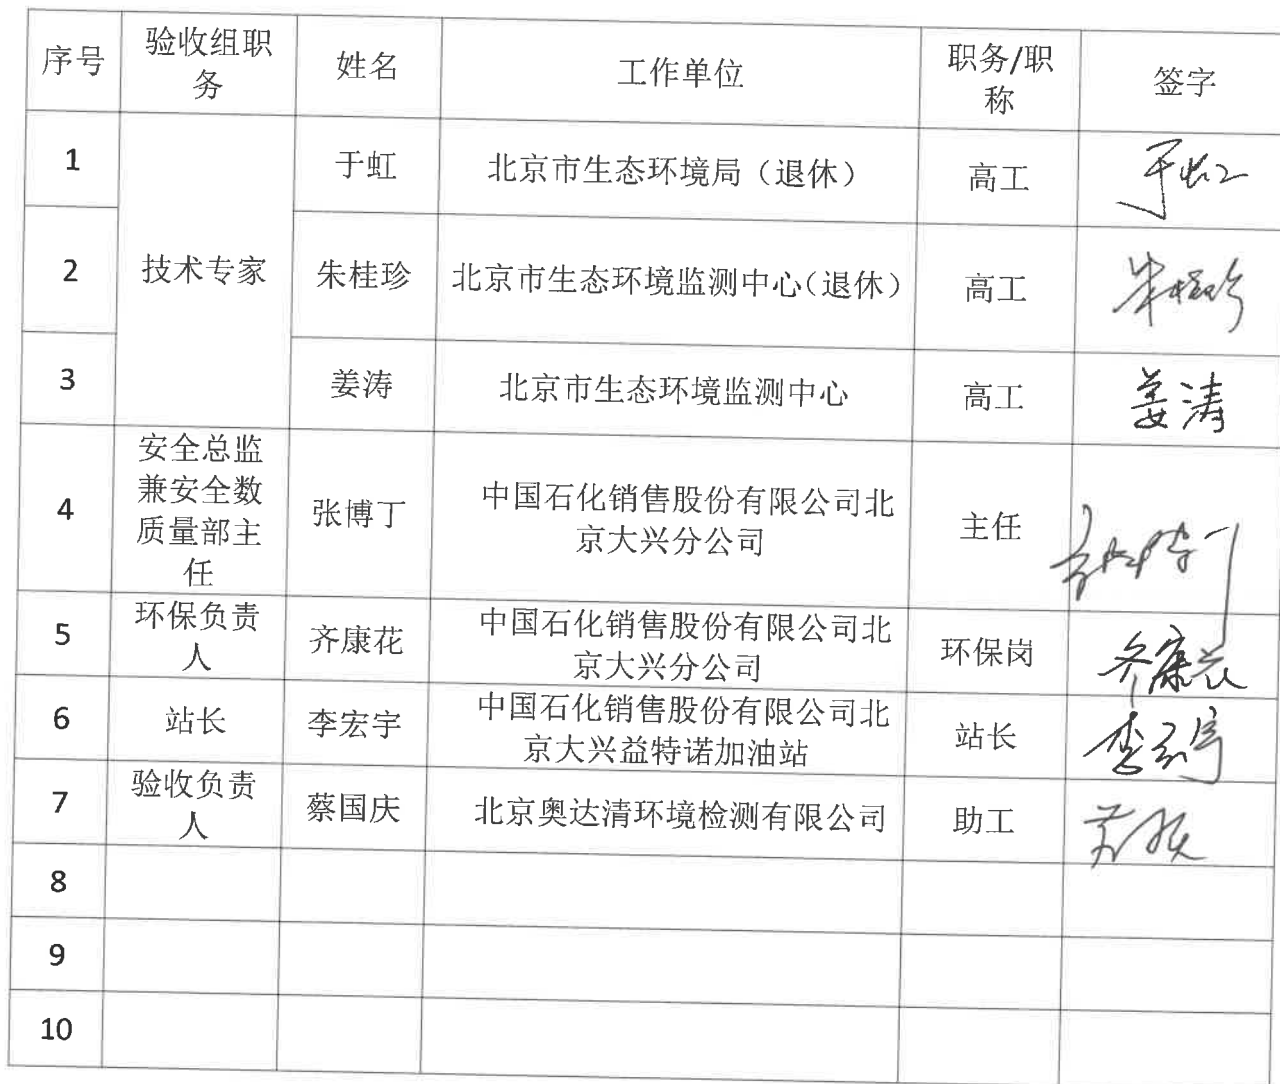 序号 验收组职务 姓名 工作单位 职务/职称 签字
1 技术专家 于虹 北京市生态环境局（退休） 高工 于虹
2 朱桂珍 北京市生态环境监测中心（退休） 高工 朱桂珍
3 姜涛 北京市生态环境监测中心 高工 姜涛
4 安全总监兼安全数质量部主任 张博丁 中国石化销售股份有限公司北京大兴分公司 主任 张博丁
5 环保负责人 齐康花 中国石化销售股份有限公司北京大兴分公司 环保岗 齐康花
6 站长 李宏宇 中国石化销售股份有限公司北京大兴益特诺加油站 站长 李宏宇
7 验收负责人 蔡国庆 北京奥达清环境检测有限公司 助工
8
9
10